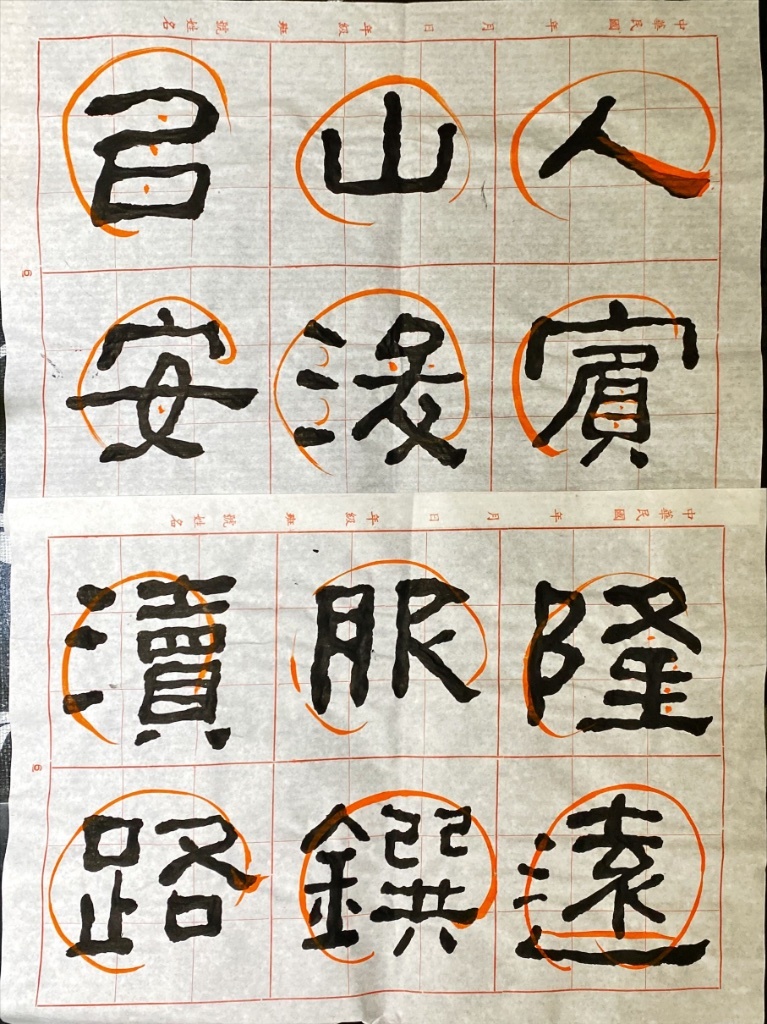 中華民國 年 月 日 年級 班 號姓名
人賓
山
名安
中華民國 年 月 日 年級 班 號姓名
隆遠
服鐉
瀆路